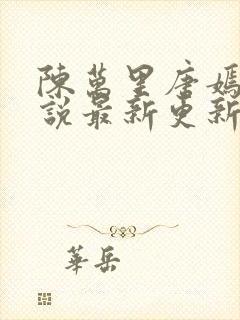 陳萬里唐嫣
說最新更新
華岳